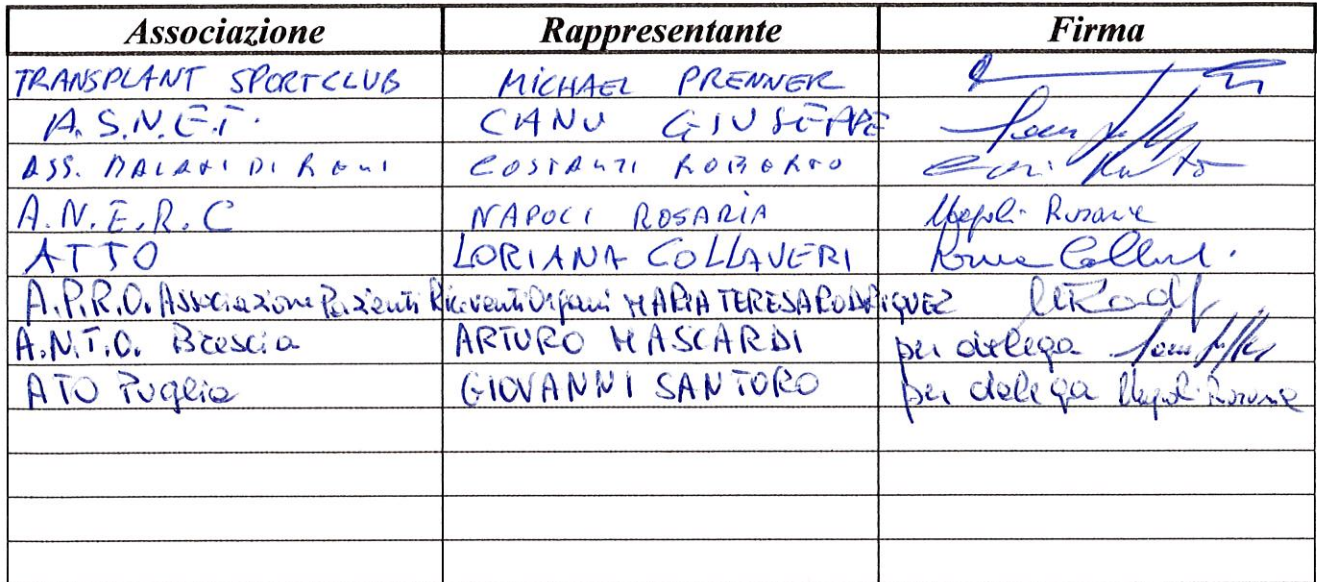 Associazione Rappresentante Firma
TRANSPLANT SPORTCLUB MICHAEL PRENNER
A.S.N.E.T. CANU GIUSEPPE
ASS. MALATI DI RENI COSTANZI ROBERTO
A.N.E.R.C NAPOLI ROSARIA Napoli Rosaria
ATTO LORIANA COLLAVERI
A.P.R.O. Associazione Pazienti Riceventi Organi MARIA TERESA RODRIQUEZ
A.N.T.O. Brescia ARTURO MASCARDI per delega
ATO Puglia GIOVANNI SANTORO per delega Napoli Rosaria